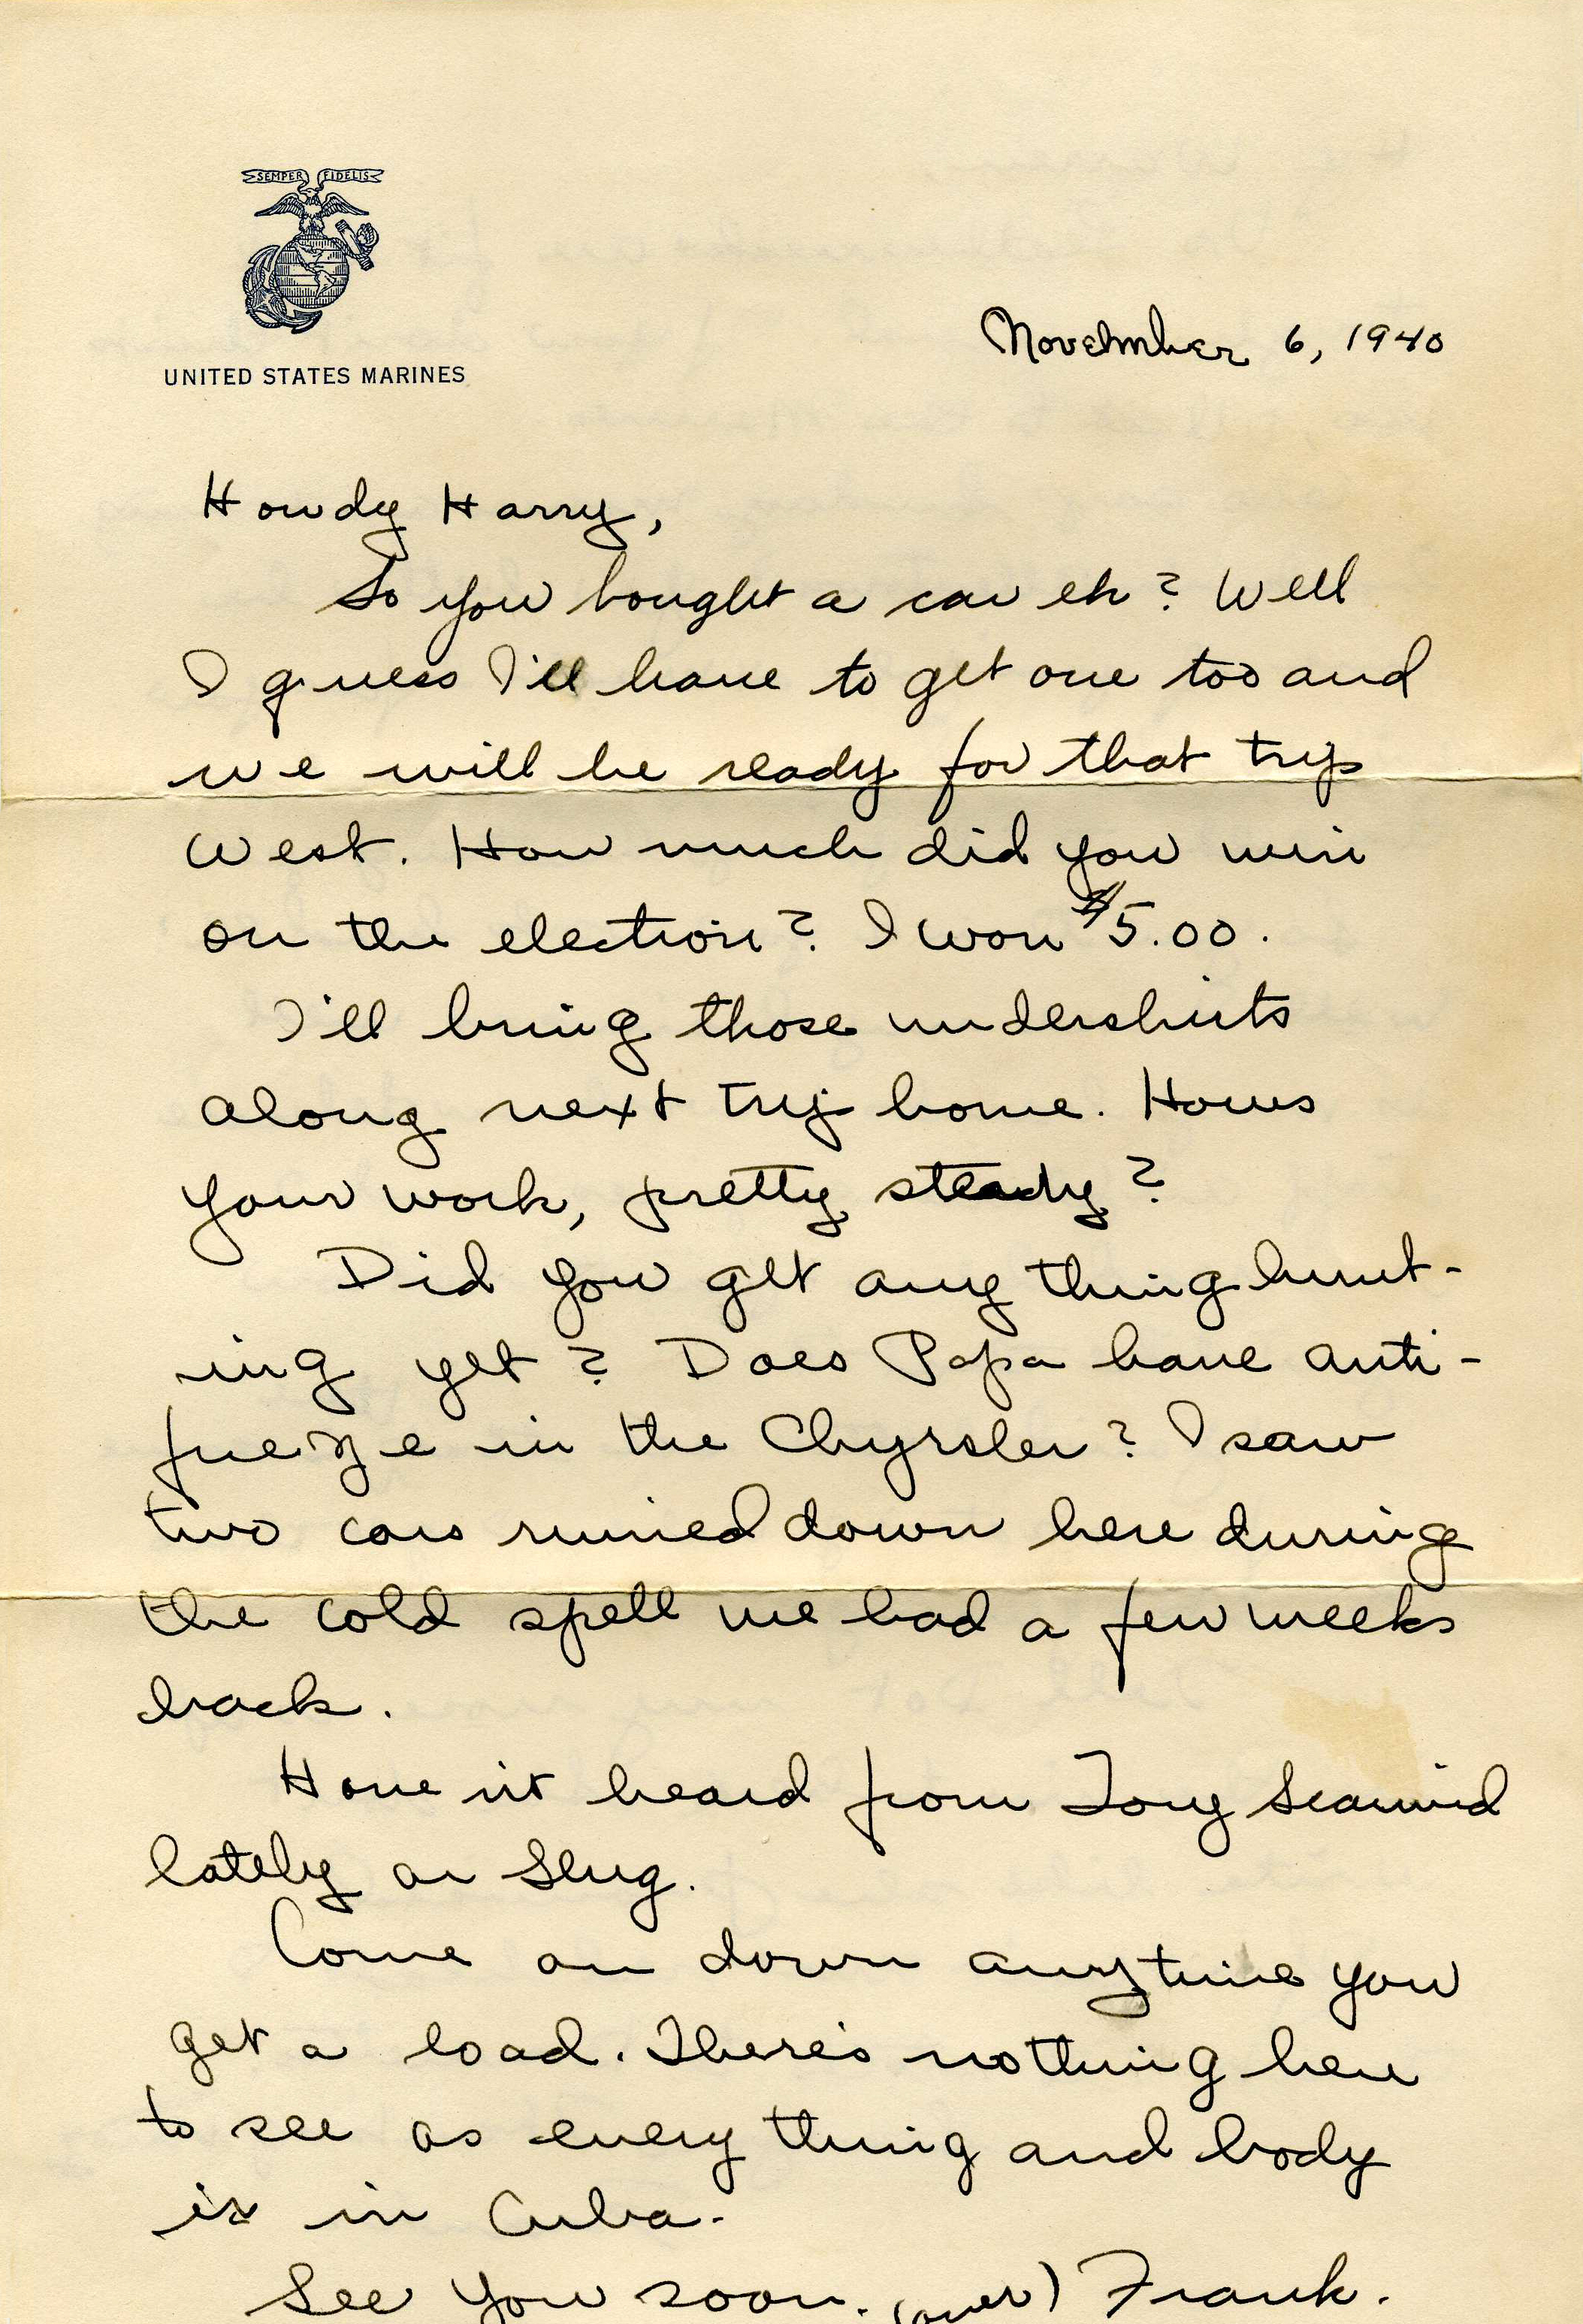 SEMPER FIDELIS
UNITED STATES MARINES
November 6, 1940
Howdy Harry,
So you bought a car eh? Well
I guess I'll have to get one too and
we will be ready for that trip
West. How much did you win
on the election? I won $5.00.
I'll bring those undershirts
along next trip home. Hows
your work, pretty steady?
Did you get any thing hunt-
ing yet? Does Papa have anti-
freeze in the Chyrsler? I saw
two cars ruined down here during
the cold spell we had a few weeks
back.
Have n't heard from Tony
lately or Slug.
Come on down anytime you
get a load. There's nothing here
to see as every thing and body
is in Cuba.
See you soon. (over) Frank.